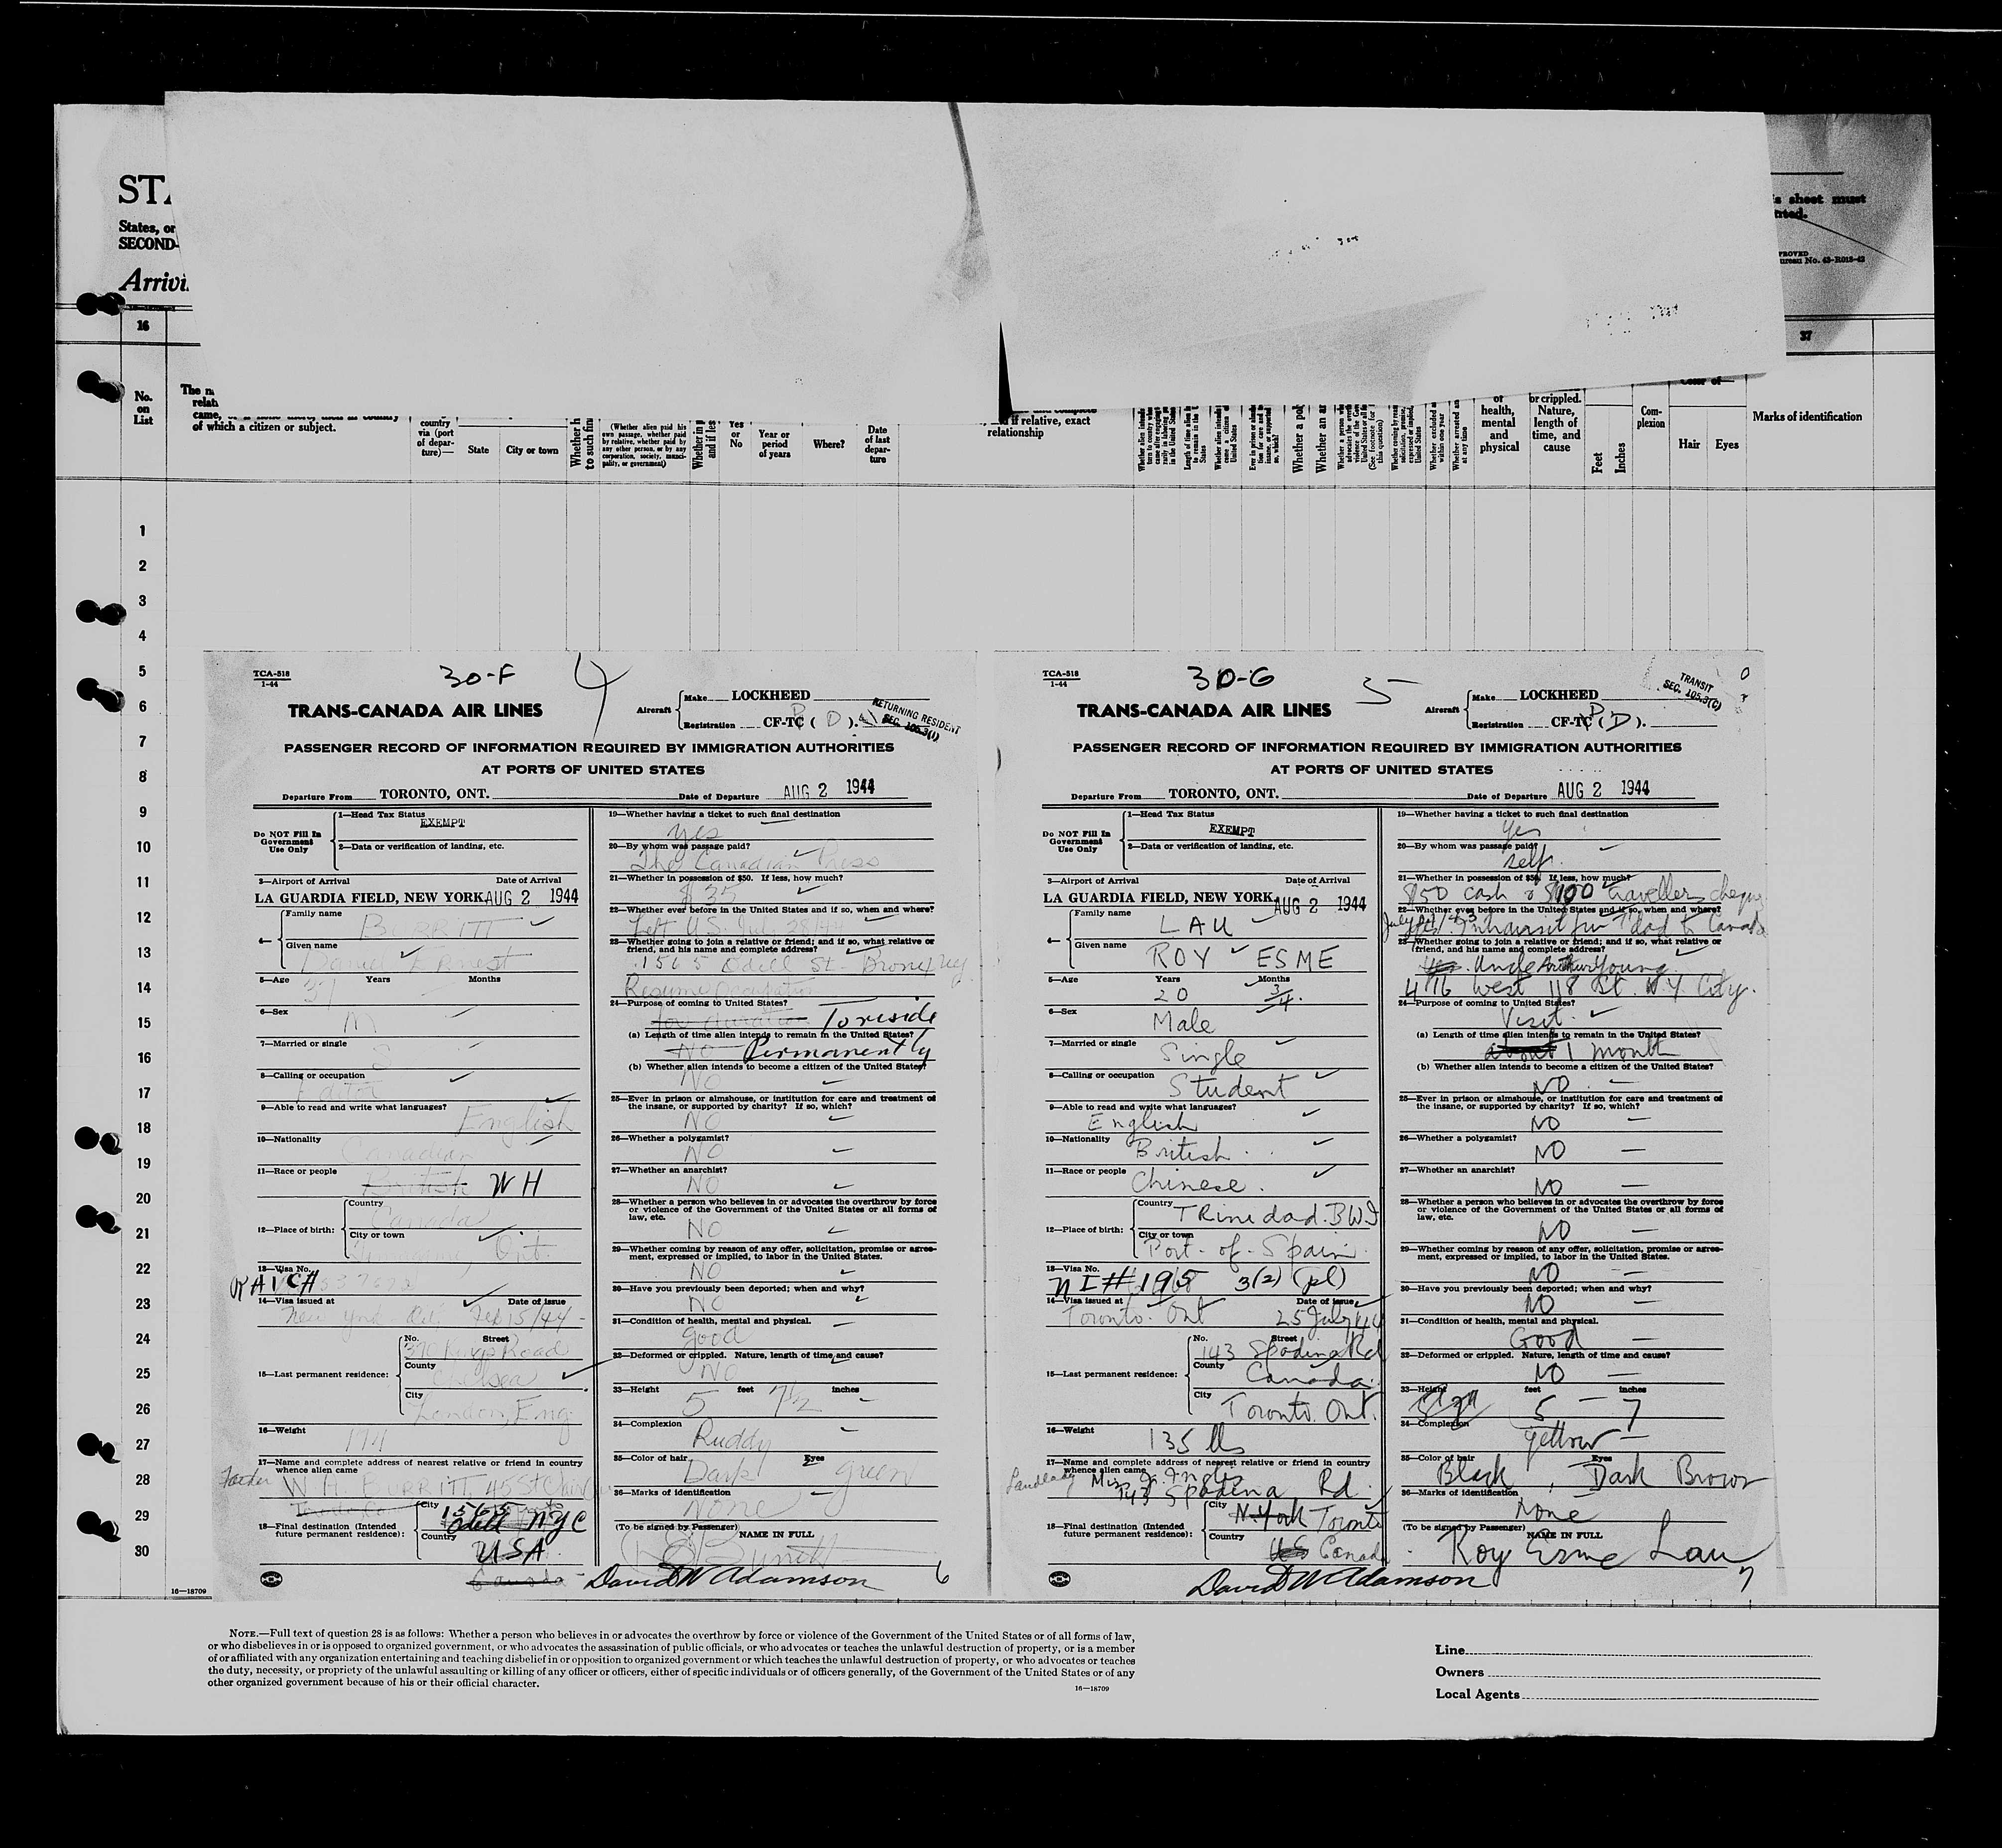 STA
States, or
SECOND-
Arrivi
s sheet must
nted.
PROVED
ureau No. 43-R018-42
16
37
No.
on
List
The n
relati
came,
of which a citizen or subject.
country
via (port
of depar-
ture)—
State
City or town
Whether h
to such fina
(Whether alien paid his
own passage, whether paid
by relative, whether paid by
any other person, or by any
corporation, society, munici-
pality, or government)
Yes
or
No
Year or
period
of years
Where?
Date
of last
depar-
ture
if relative, exact
relationship
of
health,
mental
and
physical
or crippled.
Nature,
length of
time, and
cause
Feet
Inches
Com-
plexion
Hair
Eyes
Marks of identification
1
2
3
4
5
6
7
8
9
10
11
12
13
14
15
16
17
18
19
20
21
22
23
24
25
26
27
28
29
30
TCA-518
1-44
30-F
4
TRANS-CANADA AIR LINES
Aircraft
Make LOCKHEED
Registration CF-TC ( D ).
RETURNING RESIDENT
SEC. 105.3(1)
PASSENGER RECORD OF INFORMATION REQUIRED BY IMMIGRATION AUTHORITIES
AT PORTS OF UNITED STATES
Departure From TORONTO, ONT.
Date of Departure AUG 2 1944
Do NOT Fill In
Government
Use Only
1—Head Tax Status
EXEMPT
2—Data or verification of landing, etc.
3—Airport of Arrival
Date of Arrival
LA GUARDIA FIELD, NEW YORK AUG 2 1944
4—
Family name
BURRITT
Given name
Daniel Ernest
5—Age
Years
Months
37
6—Sex
M
7—Married or single
S
8—Calling or occupation
Editor
9—Able to read and write what languages?
English
10—Nationality
Canadian
11—Race or people
British WH
12—Place of birth:
Country
Canada
City or town
Ont.
13—Visa No.
14—Visa issued at
Date of issue
New York City Feb 15/44
15—Last permanent residence:
No.
Street
370 Kings Road
County
Chelsea
City
London, Eng.
16—Weight
17—Name and complete address of nearest relative or friend in country
whence alien came
Father W. H. BURRITT, 45 St Clair
18—Final destination (Intended
future permanent residence):
City
1565
Odell NYC
Country
USA
Canada
19—Whether having a ticket to such final destination
yes
20—By whom was passage paid?
The Canadian Press
21—Whether in possession of $50. If less, how much?
$35
22—Whether ever before in the United States and if so, when and where?
Left U.S. July 28/44
23—Whether going to join a relative or friend; and if so, what relative or
friend, and his name and complete address?
1565 Odell St. Bronx NY
Resume Occupation
24—Purpose of coming to United States?
for duration To reside
(a) Length of time alien intends to remain in the United States?
NO Permanently
(b) Whether alien intends to become a citizen of the United States?
NO
25—Ever in prison or almshouse, or institution for care and treatment of
the insane, or supported by charity? If so, which?
NO
26—Whether a polygamist?
NO
27—Whether an anarchist?
NO
28—Whether a person who believes in or advocates the overthrow by force
or violence of the Government of the United States or all forms of
law, etc.
NO
29—Whether coming by reason of any offer, solicitation, promise or agree-
ment, expressed or implied, to labor in the United States.
NO
30—Have you previously been deported; when and why?
NO
31—Condition of health, mental and physical.
good
32—Deformed or crippled. Nature, length of time and cause?
NO
33—Height
feet
inches
5 7½
34—Complexion
Ruddy
35—Color of hair
Eyes
Dark green
36—Marks of identification
None
(To be signed by Passenger)
NAME IN FULL
David W Adamson
6
TCA-518
1-44
30-G
5
TRANS-CANADA AIR LINES
Aircraft
Make LOCKHEED
Registration CF-TC ( D ).
TRANSIT
SEC. 105.3(c)
PASSENGER RECORD OF INFORMATION REQUIRED BY IMMIGRATION AUTHORITIES
AT PORTS OF UNITED STATES
Departure From TORONTO, ONT.
Date of Departure AUG 2 1944
Do NOT Fill In
Government
Use Only
1—Head Tax Status
EXEMPT
2—Data or verification of landing, etc.
3—Airport of Arrival
Date of Arrival
LA GUARDIA FIELD, NEW YORK AUG 2 1944
4—
Family name
LAU
Given name
ROY ESME
5—Age
Years
Months
20 3/4.
6—Sex
Male
7—Married or single
Single
8—Calling or occupation
Student
9—Able to read and write what languages?
English
10—Nationality
British
11—Race or people
Chinese.
12—Place of birth:
Country
TRinedad. BWI
City or town
Port-of-Spain
13—Visa No.
NI# 195 3(2) (pl)
14—Visa issued at
Date of issue
Toronto. Ont 25 July 44
15—Last permanent residence:
No.
Street
143 Spadina Rd
County
Canada.
City
Toronto. Ont.
16—Weight
135 lbs
17—Name and complete address of nearest relative or friend in country
whence alien came
Landlady
143 Spadina Rd.
18—Final destination (Intended
future permanent residence):
City
N.York Toronto
Country
US Canada
19—Whether having a ticket to such final destination
Yes
20—By whom was passage paid?
self.
21—Whether in possession of $50. If less, how much?
$50 cash & $100 travellers cheques
22—Whether ever before in the United States and if so, when and where?
23—Whether going to join a relative or friend; and if so, what relative or
friend, and his name and complete address?
Uncle Arthur Young
416 West 118 St. N.Y. City.
24—Purpose of coming to United States?
Visit.
(a) Length of time alien intends to remain in the United States?
about 1 month
(b) Whether alien intends to become a citizen of the United States?
NO
25—Ever in prison or almshouse, or institution for care and treatment of
the insane, or supported by charity? If so, which?
NO
26—Whether a polygamist?
NO
27—Whether an anarchist?
NO
28—Whether a person who believes in or advocates the overthrow by force
or violence of the Government of the United States or all forms of
law, etc.
NO
29—Whether coming by reason of any offer, solicitation, promise or agree-
ment, expressed or implied, to labor in the United States.
NO
30—Have you previously been deported; when and why?
NO
31—Condition of health, mental and physical.
Good
32—Deformed or crippled. Nature, length of time and cause?
NO
33—Height
feet
inches
5 7
34—Complexion
yellow
35—Color of hair
Eyes
Black, Dark Brown
36—Marks of identification
None
(To be signed by Passenger)
NAME IN FULL
Roy Esme Lau
David W Adamson
7
16—18709
NOTE.—Full text of question 28 is as follows: Whether a person who believes in or advocates the overthrow by force or violence of the Government of the United States or of all forms of law,
or who disbelieves in or is opposed to organized government, or who advocates the assassination of public officials, or who advocates or teaches the unlawful destruction of property, or is a member
of or affiliated with any organization entertaining and teaching disbelief in or opposition to organized government or which teaches the unlawful destruction of property, or who advocates or teaches
the duty, necessity, or propriety of the unlawful assaulting or killing of any officer or officers, either of specific individuals or of officers generally, of the Government of the United States or of any
other organized government because of his or their official character.
16—18709
Line
Owners
Local Agents